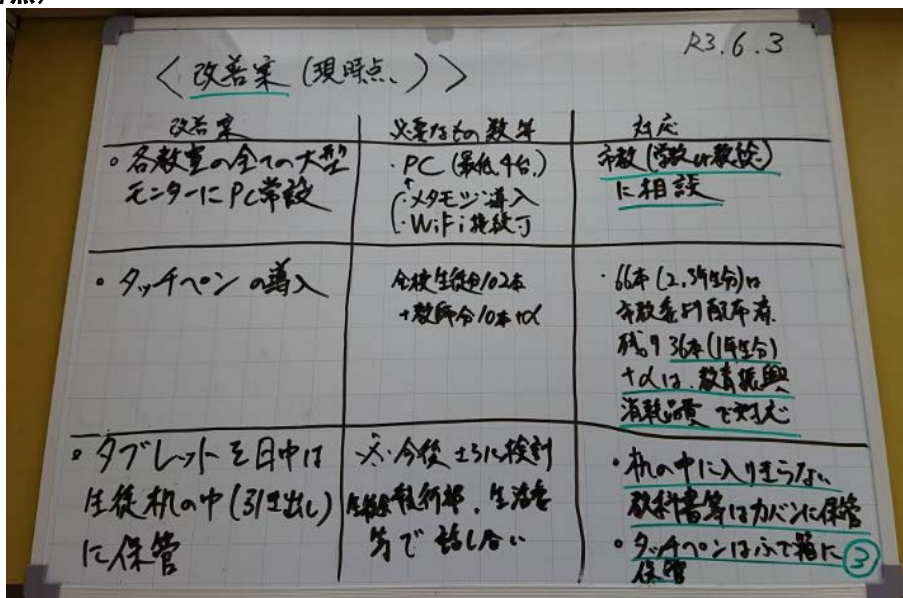 R3.6.3
＜改善案(現時点、)＞
改善案
必要なもの 数等
対応
。各教室の全ての大型
モニターにPC常設
・PC(最低4台.)
・メタモジ導入
・WiFi接続可
市教(学教or教総)
に相談
・タッチペンの導入
全校生徒分102本
+教師分10本+α
・66本(2.3年生分)は
市教委より配布済.
残り36本(1年生分)
+αは、教育振興
消耗品費で対応
。タブレットを日中は
生徒机の中(引き出し)
に保管
※今後さらに検討
生徒会執行部、生活委
等で話し合い
・机の中に入りきらない
教科書等はカバンに保管
・タッチペンはふで箱に
保管
③